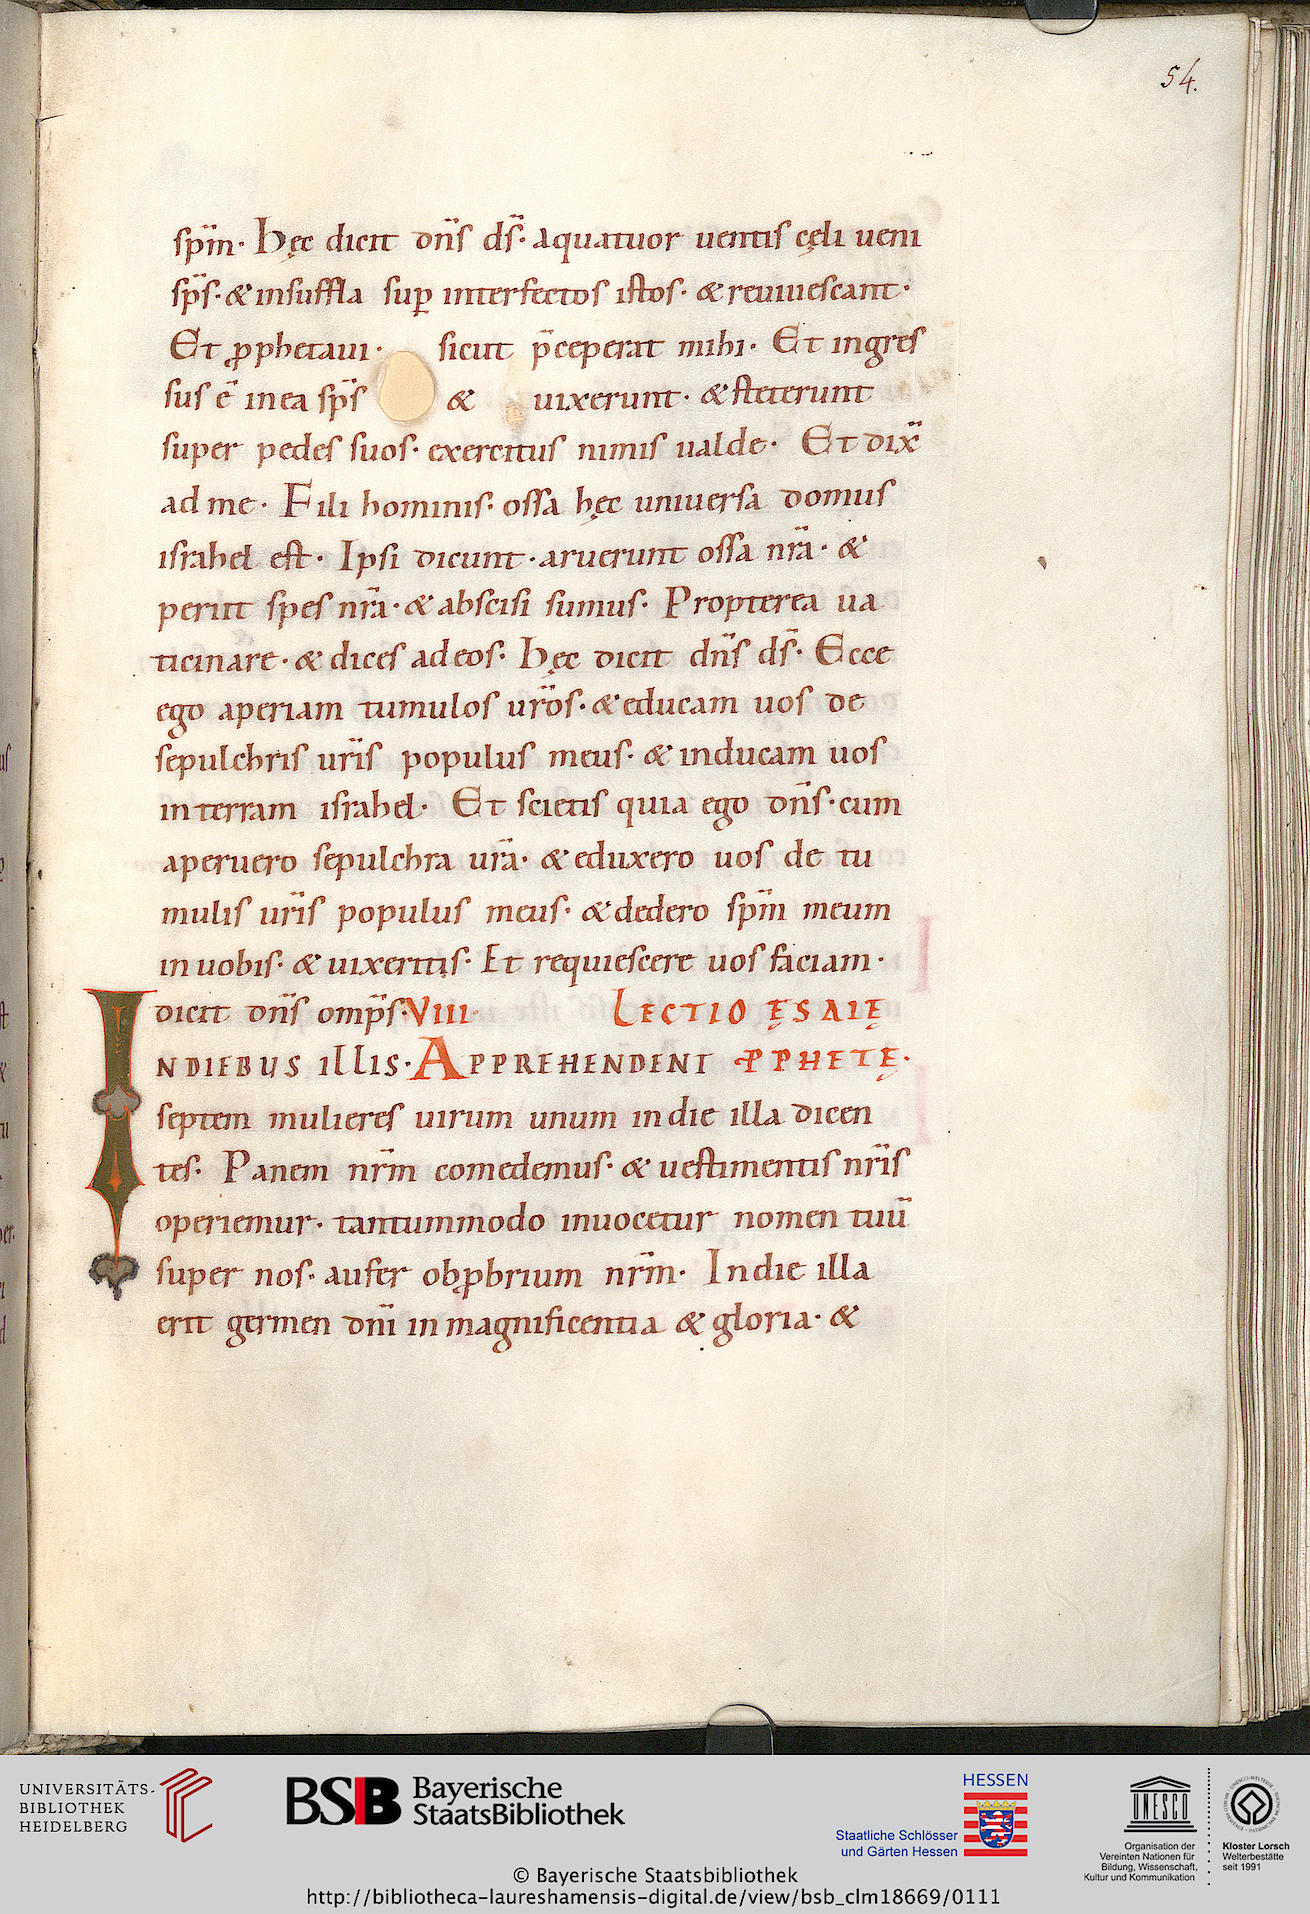 54.
sp̅m· Hęc dicit dn̅s ds̅· aquatuor uentis cęli ueni
sp̅s· & insuffla sup̲ interfectos istos· & reuiuescant·
Et ꝓphetaui· sicut p̅ceperat mihi· Et ingres
sus ē in ea sp̅s & uixerunt· & steterunt
super pedes suos· exercitus nimis ualde· Et dix̅
ad me· Fili hominis· ossa hęc uniuersa domus
israhel est· Ipsi dicunt· aruerunt ossa nr̅a· &
periit spes nr̅a· & abscisi sumus· Propterea ua
ticinare· & dices ad eos· Hęc dicit dn̅s ds̅· Ecce
ego aperiam tumulos ur̅os· & educam uos de
sepulchris ur̅is populus meus· & inducam uos
in terram israhel· Et scietis quia ego dn̅s· cum
aperuero sepulchra ur̅a· & eduxero uos de tu
mulis ur̅is populus meus· & dedero sp̅m meum
in uobis· & uixeritis· Et requiescere uos faciam·
dicit dn̅s omp̅s· VIII· LECTIO ĘSAIĘ
INDIEBUS ILLIS· APPREHENDENT PPHETĘ·
septem mulieres uirum unum in die illa dicen
tes· Panem nr̅m comedemus· & uestimentis nr̅is
operiemur· tantummodo inuocetur nomen tuū
super nos· aufer obꝓbrium nr̅m· In die illa
erit germen dn̅i in magnificentia & gloria· &
UNIVERSITÄTS-
BIBLIOTHEK
HEIDELBERG
BSB Bayerische
StaatsBibliothek
HESSEN
Staatliche Schlösser
und Gärten Hessen
UNESCO
Organisation der
Vereinten Nationen für
Bildung, Wissenschaft,
Kultur und Kommunikation
Kloster Lorsch
Welterbestätte
seit 1991
© Bayerische Staatsbibliothek
http://bibliotheca-laureshamensis-digital.de/view/bsb_clm18669/0111